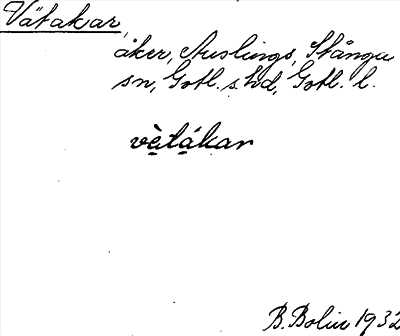 Vätakar,
åker, Auslings, Stånga
sn, Gotl. s. hd, Gotl. l.
vè̱tá̱kar
B. Bolin 1932